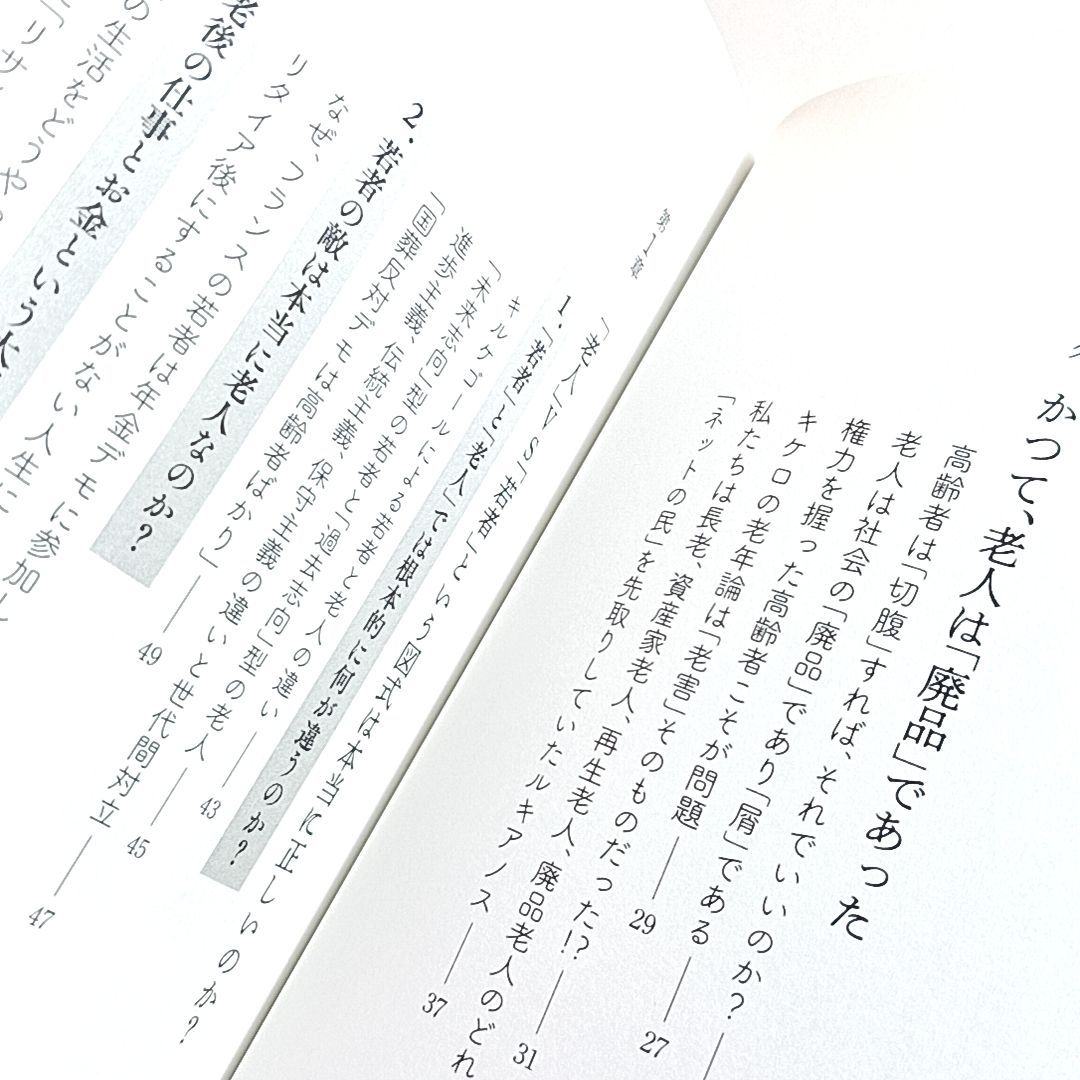 かつて、老人は「廃品」であった
高齢者は「切腹」すれば、それでいいのか?
老人は社会の「廃品」であり「屑」である 27
権力を握った高齢者こそが問題 29
キケロの老年論は「老害」そのものだった!? 31
私たちは長老、資産家老人、再生老人、廃品老人のどれ
「ネットの民」を先取りしていたルキアノス 37
第1章
「老人」VS「若者」という図式は本当に正しいのか?
1.「若者」と「老人」では根本的に何が違うのか?
キルケゴールによる若者と老人の違い 43
「未来志向」型の若者と「過去志向」型の老人 45
進歩主義、伝統主義、保守主義の違いと世代間対立 47
「国葬反対デモは高齢者ばかり」 49
2.若者の敵は本当に老人なのか?
なぜ、フランスの若者は年金デモに参加し
リタイア後にすることがない人生に
老後の仕事とお金という大
の生活をどうや
「リサ